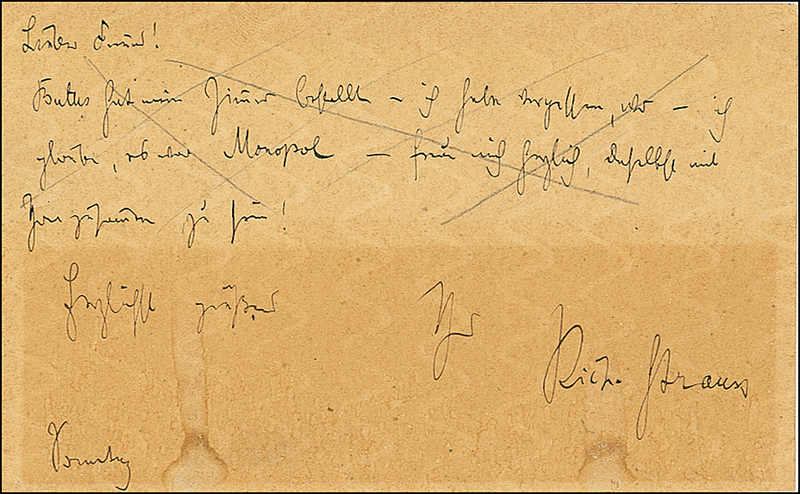 Lieber Freund!
hat mir Zimmer bestellt – ich habe vergessen, wo – ich
glaube, es war Monopol – freue mich herzlich, daselbst mit
Ihnen zusammen zu sein!
Herzlichst grüßend
Ihr
Rich. Strauss
Sonntag